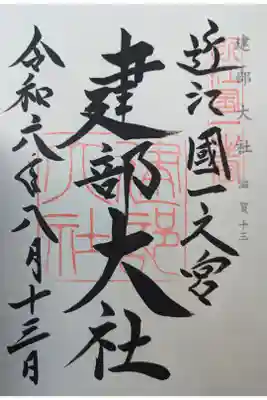 建部大社 滋賀十三
近江國一之宮
建部大社
令和六年八月十三日
建部大社